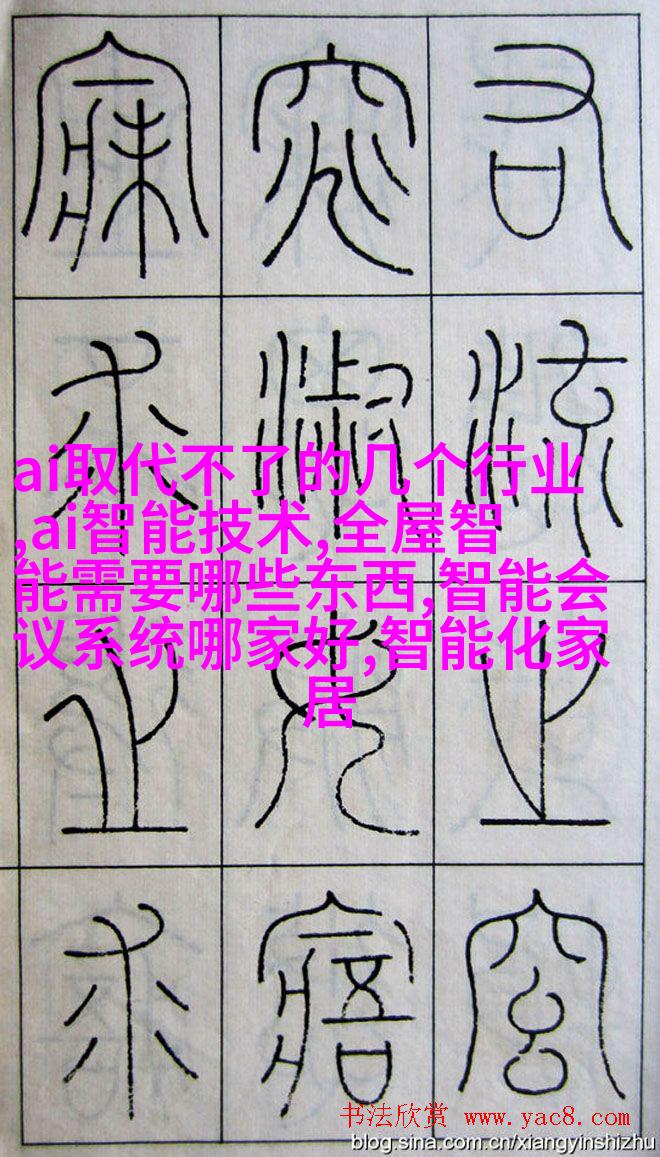 右流之窈
窕淑女寤
寐求之求
ai取代不了的几个行业
,ai智能技术,全屋智
能需要哪些东西,智能会
议系统哪家好,智能化家
居
书法欣赏 www.yac8.com
blog.sina.com.cn/xiangyinshizhu